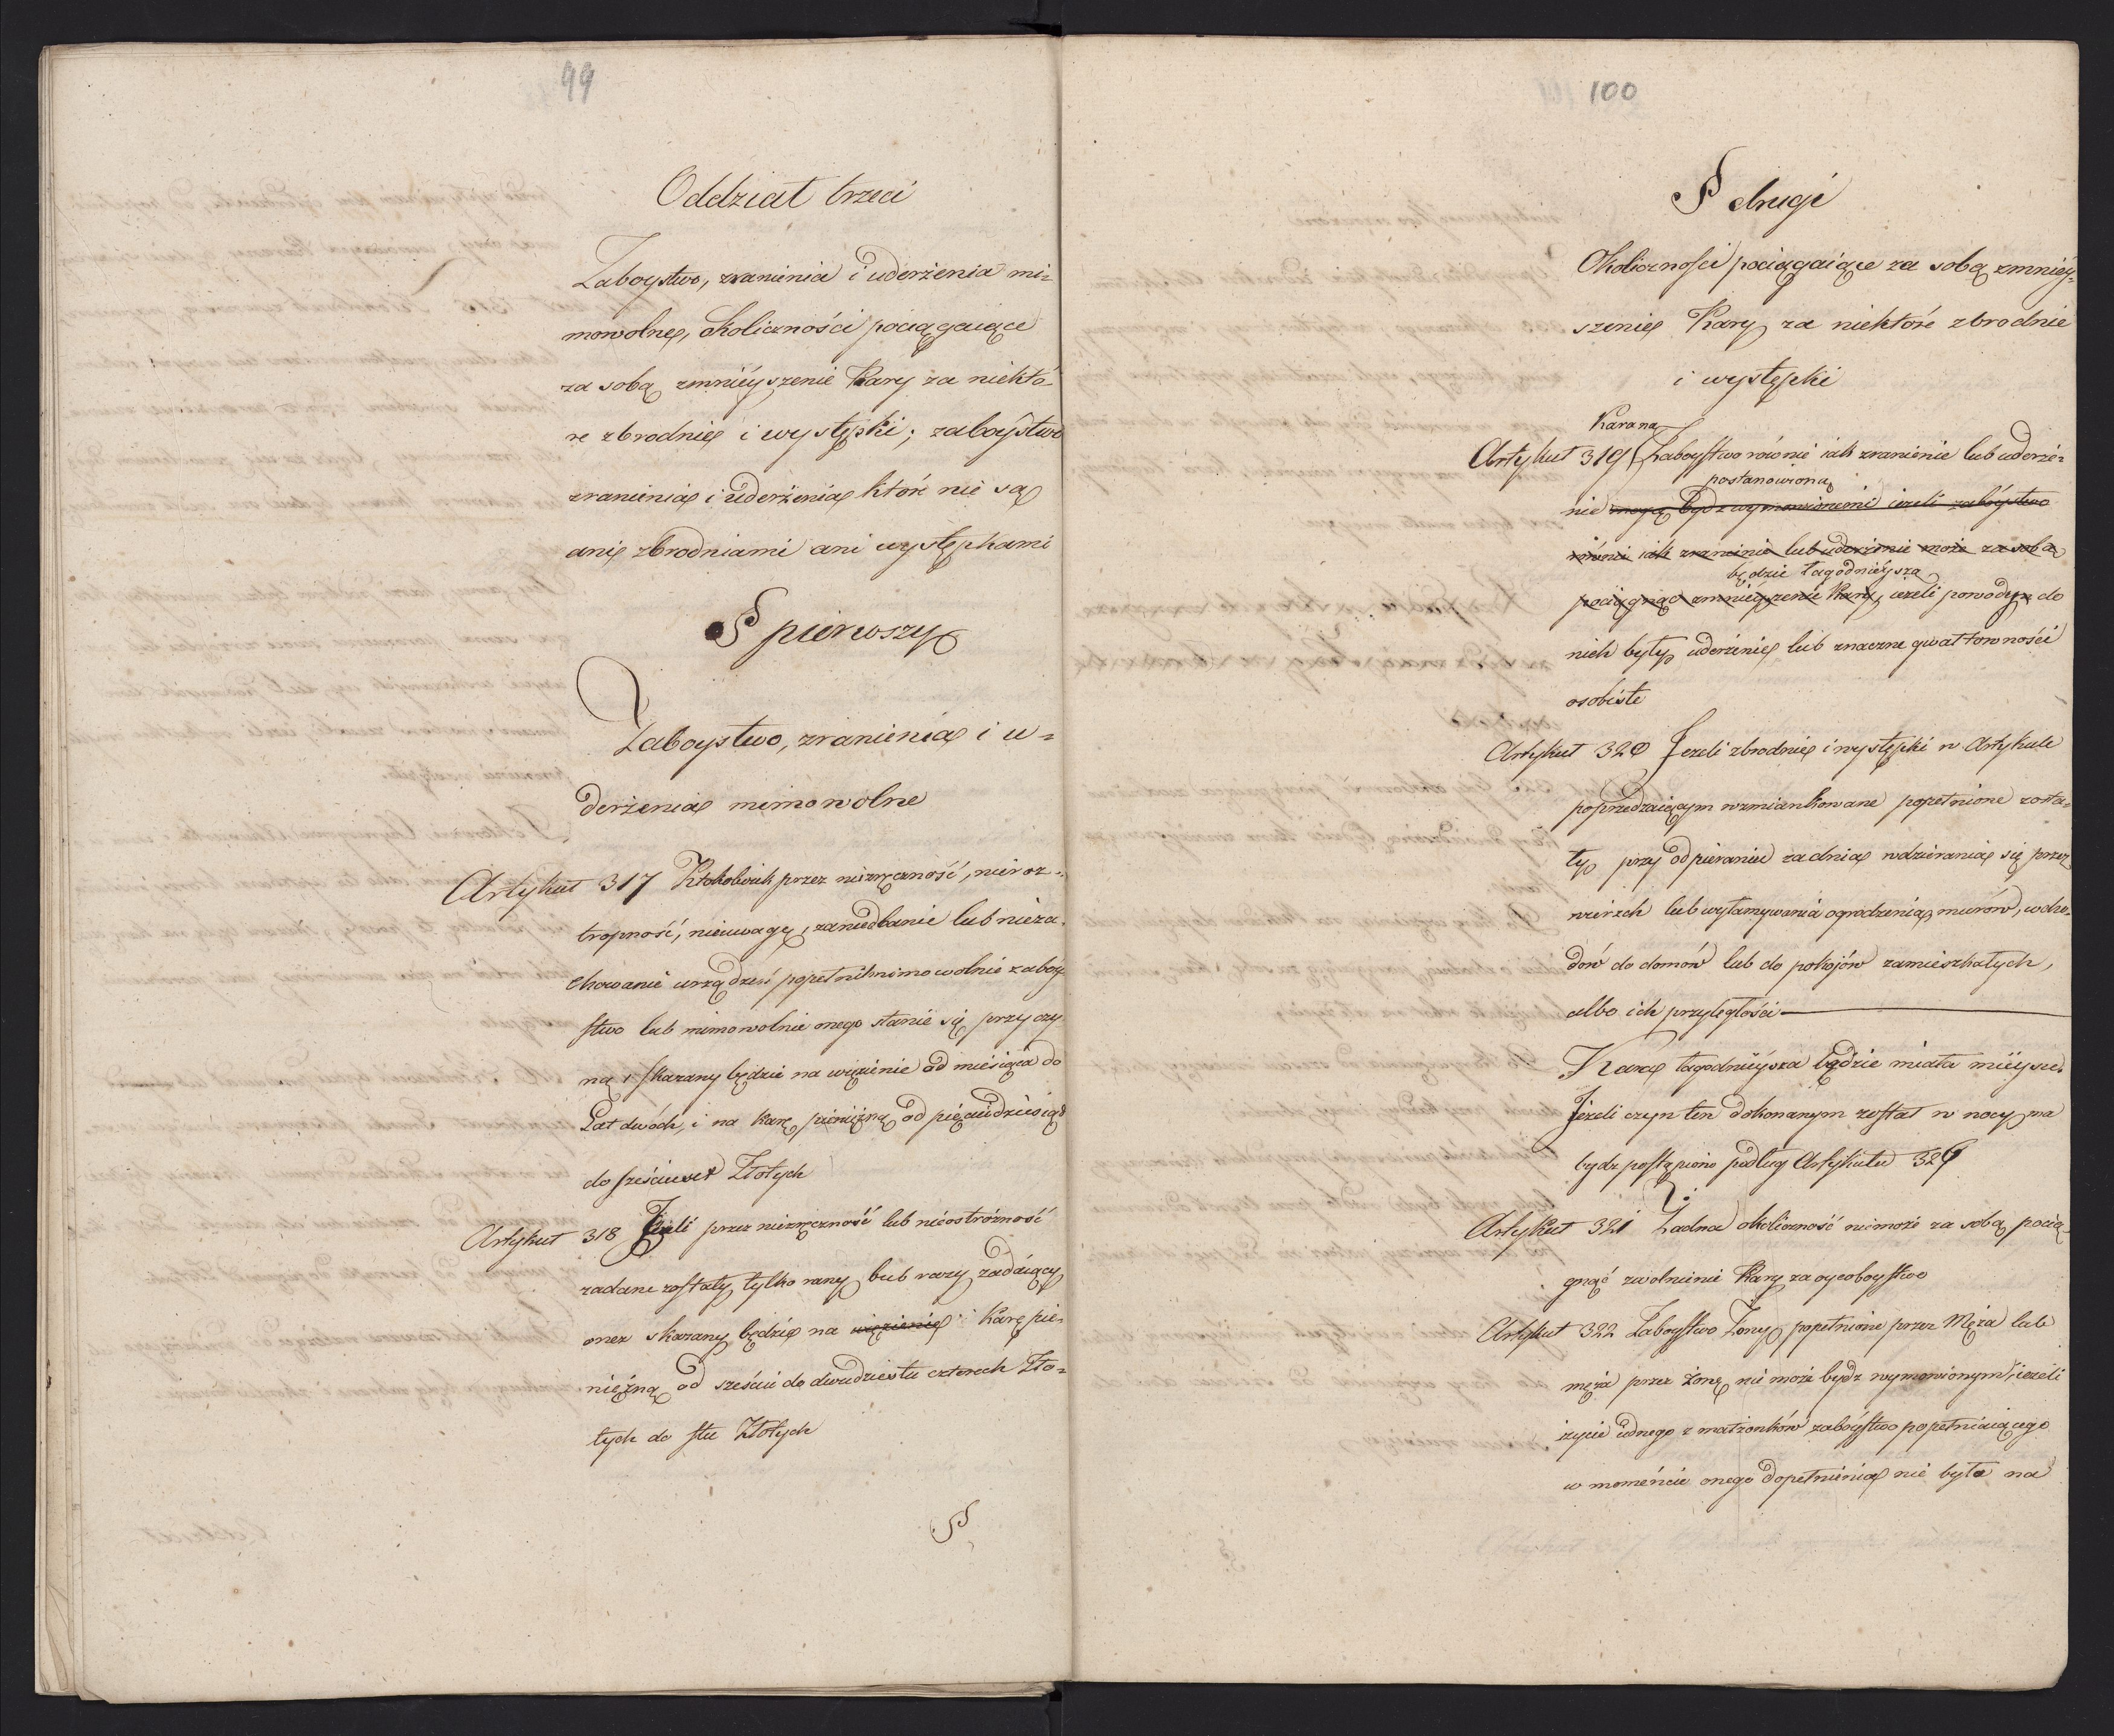 99
Oddział trzeci
Zaboystwo, zranienia i uderzenia mi=
mowolne, Okoliczności pociągaiące
za sobą zmnieyszenie Kary za niektó=
re zbrodnie i występki; zaboystwo
zranienia i uderzenia które nie są
ani zbrodniami ani występkami
§ pierwszy
Zaboystwo, zranienia i u=
derzenia mimowolne
Artykuł 317 Ktokolwiek przez niezręczność, nieroz=
tropność, nieuwagę, zaniedbanie lub nieza=
chowanie urządzeń popełnił mimowolnie zaboy
stwo lub mimowolnie onego stanie się przyczy
ną, skazany będzie na więzienie od miesiąca do
Lat dwóch, i na karę pieniężną od pięciudziesiąt
do sześciuset Złotych
Artykuł 318 Jeżeli przez niezręczność lub nieostrożność
zadane zostały tylko rany lub razy zadaiący
onez skazany będzie na więzienie Karę pie=
niężną od sześciu do dwudziestu czterech Zło=
tych do stu Złotych
§
100
§ drugi
Okoliczności pociągaiące za sobą zmniey=
szenie Kary za niektóre zbrodnie
i występki
Kara na
Artykuł 319 Zaboystwo równie iak zranienie lub uderze=
postanowiona
nie mogą bydź wymowionemi ieżeli zabóystwo
równie iak zranienie lub uderzenie może za sobą
będzie łagodnieysza
pociągnąć zmnieyszenie Kary, ieżeli powodem do
nich były uderzenie lub znaczne gwałtowności
osobiste
Artykuł 320 Jeżeli zbrodnie i występki w Artykule
poprzedzaiącym wzmiankowane popełnione zosta=
ły przy odpieraniu za dnia wdzierania się przez
wierzch lub wyłamywania ogrodzenia, murów, wcho=
dów do domów lub do pokojów zamieszkałych,
albo ich przyległości
Kara łagodnieysza będzie miała mieysce.
Jeżeli czyn ten dokonanym został w nocy, ma
bydz postąpiono podług Artykułu 329
Artykuł 321 Żadna okoliczność niemoże za sobą pocią=
gnąć zwolnienie Kary za oycoboystwo
Artykuł 322 Zaboystwo Żony popełnione przez Męża lub
męża przez żonę nie może bydz wymowionym, ieżeli
życie iednego z małżonków zabóystwo popełniaiącego
w momencie onego dopełnienia nie było na